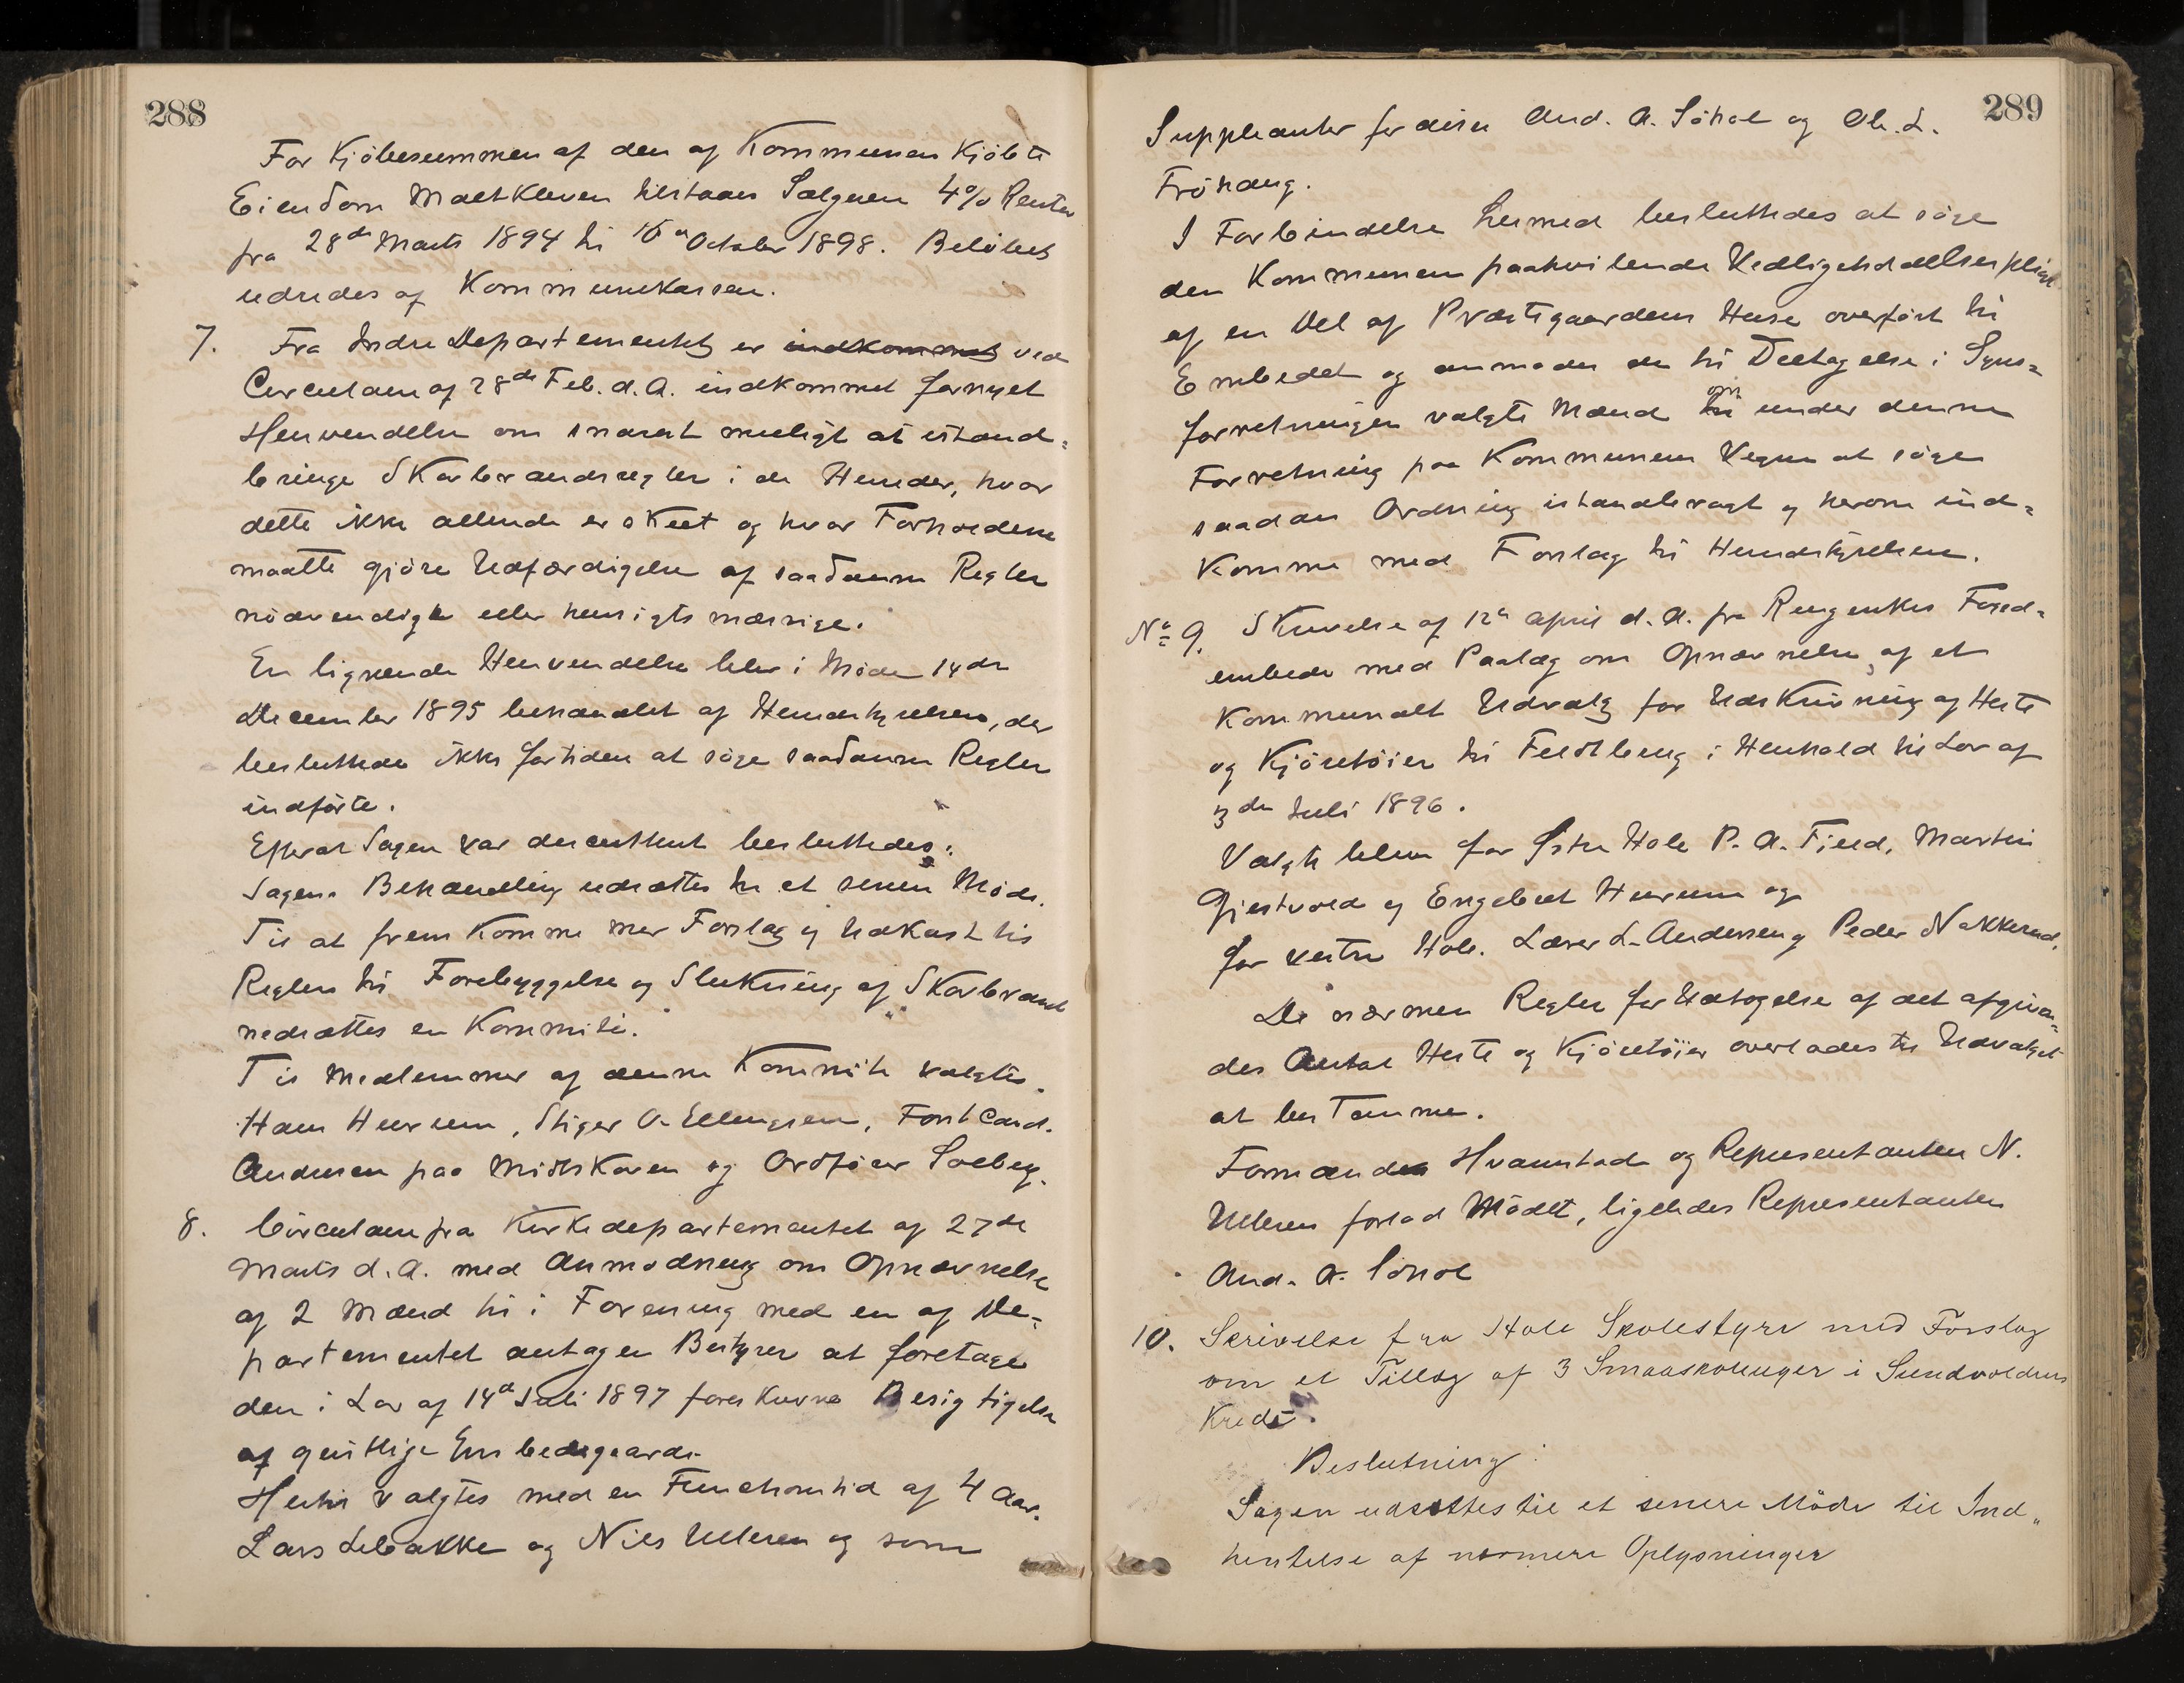 288
For Kjöbesummen af den af Kommunen Kjöbte
Eiendom MaetKleven tilstaaes Sælgeren 4% Renter
fra 28de Marts 1894 til 16de October 1898. Belöbet
udredes af Kommunekassen.
7. Fra Indre Departementet er indkommet ved
Circulære af 28de Feb. d. A. indkommet fornyet
Henvendelse om snarest muligt at istand-
bringe Skovbrandsregler i de Herreder, hvor
dette ikke allerede er skeet og hvor Forholdene
maatte gjöre Udfærdigelse af saadanne Regler
nödvendige eller hensigtsmæssige.
En lignende Henvendelse blev i Möde 14de
December 1895 behandlet af Herredstyrelsen, der
besluttede ikke fortiden at söge saadanne Regler
indförte.
Efterat Sagen var discuteret besluttedes:
Sagens Behandling udsættes til et senere Möde.
Til at fremkomme med Forslag og Udkast til
Regler til Forebyggelse og Slukning af Skovbrand
nedsættes en Kommite.
Til Medlemmer af denne Kommite valgtes
Hans Hurum, Stiger O. Ellingsen, Forstcand.
Andersen paa Midtskoven og Ordförer Solberg.
8. Circulære fra Kirkedepartementet af 27de
Marts d. A. med Anmodning om Opnævnelse
af 2 Mænd til i Forening med en af De-
partementet antagen Bestyrer at foretage
den i Lov af 14de Juli 1897 foreskrevne Besigtigelse
af geistlige Embedsgaarde.
Hertil valgtes med en Functionstid af 4 Aar.
Lars Lebakke og Nils Ulleren og som
289
Suppleanter for disse And. A. Sönol og Ole L.
Fröhaug.
I Forbindelse hermed besluttedes at söge
den Kommunen paahvilende Vedligeholdelsespligt
af en Del af Præstegaardens Huse overfört til
Embedet og anmodes de til Deltagelse i Syns-
forretningen valgte Mænd til om under denne
Forretning paa Kommunens Vegne at söge
saadan Ordning istandbragt og herom ind-
komme med Forslag til Herredstyrelsen.
No 9. Skrivelse af 12te April d. A. fra Ringerikes Foged-
embede med Paalæg om Opnævnelse af et
Kommunalt Udvalg for Udskrivning af Heste
og Kjöretöier til Feltbrug i Henhold til Lov af
3die Juli 1896.
Valgte bleve for Östre Hole P. A. Fjeld, Martin
Gjestvold og Engebret Hurum og
for vestre Hole. Lærer L. Andersen og Peder Nakkerud.
De nærmere Regler for Udtagelse af det afgiven-
des Antal Heste og Kjöretöier overlades til Udvalget
at bestamme.
Formanden Hvamstad og Representanten N.
Ulleren forlod Mödet, ligeledes Representanten
And. A. Sönol
10. Skrivelse fra Hole Skolestyre med Forslag
om et Tillæg af 3 Smaaskoleuger i Sundvoldens
Kreds.
Beslutning:
Sagen udsættes til et senere Möde til Ind„
hentelse af nærmere Oplysninger